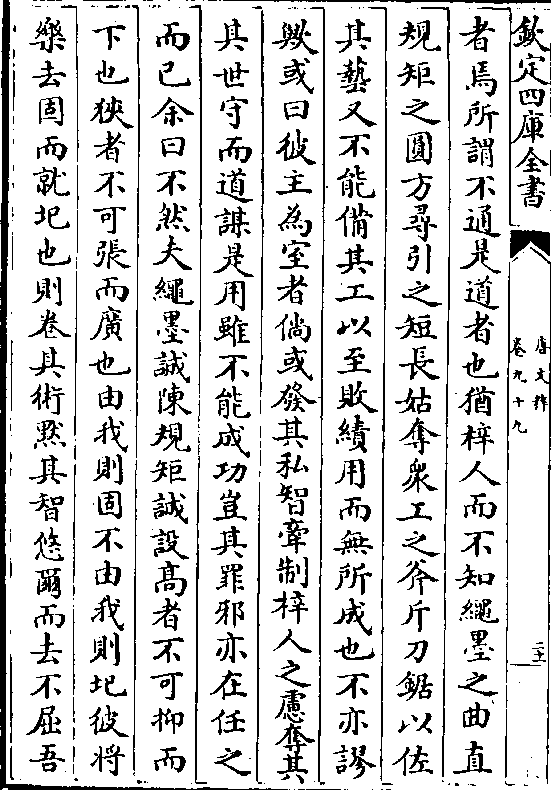 欽定四庫全書
唐文粹
卷九十九
二十一
者焉所謂不通是道者也猶梓人而不知繩墨之曲直
規矩之圓方尋引之短長姑奪衆工之斧斤刀鋸以佐
其藝又不能備其工以至敗績用而無所成也不亦謬
歟或曰彼主為室者倘或發其私智牽制梓人之慮奪其
其世守而道謀是用雖不能成功豈其罪邪亦在任之
而已余曰不然夫繩墨誠陳規矩誠設髙者不可抑而
下也狹者不可張而廣也由我則固不由我則圯彼將
樂去固而就圯也則卷其術黙其智悠爾而去不屈吾